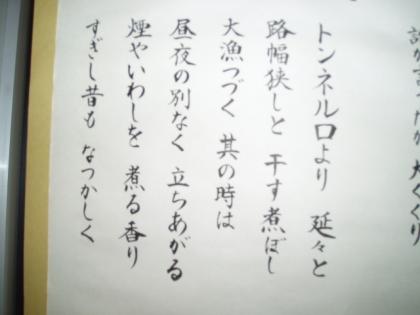 トンネル口より 延々と
路幅狭しと 干す煮ぼし
大漁つづく 其の時は
昼夜の別なく 立ちあがる
煙やいわしを 煮る香り
すぎし昔も なつかしく